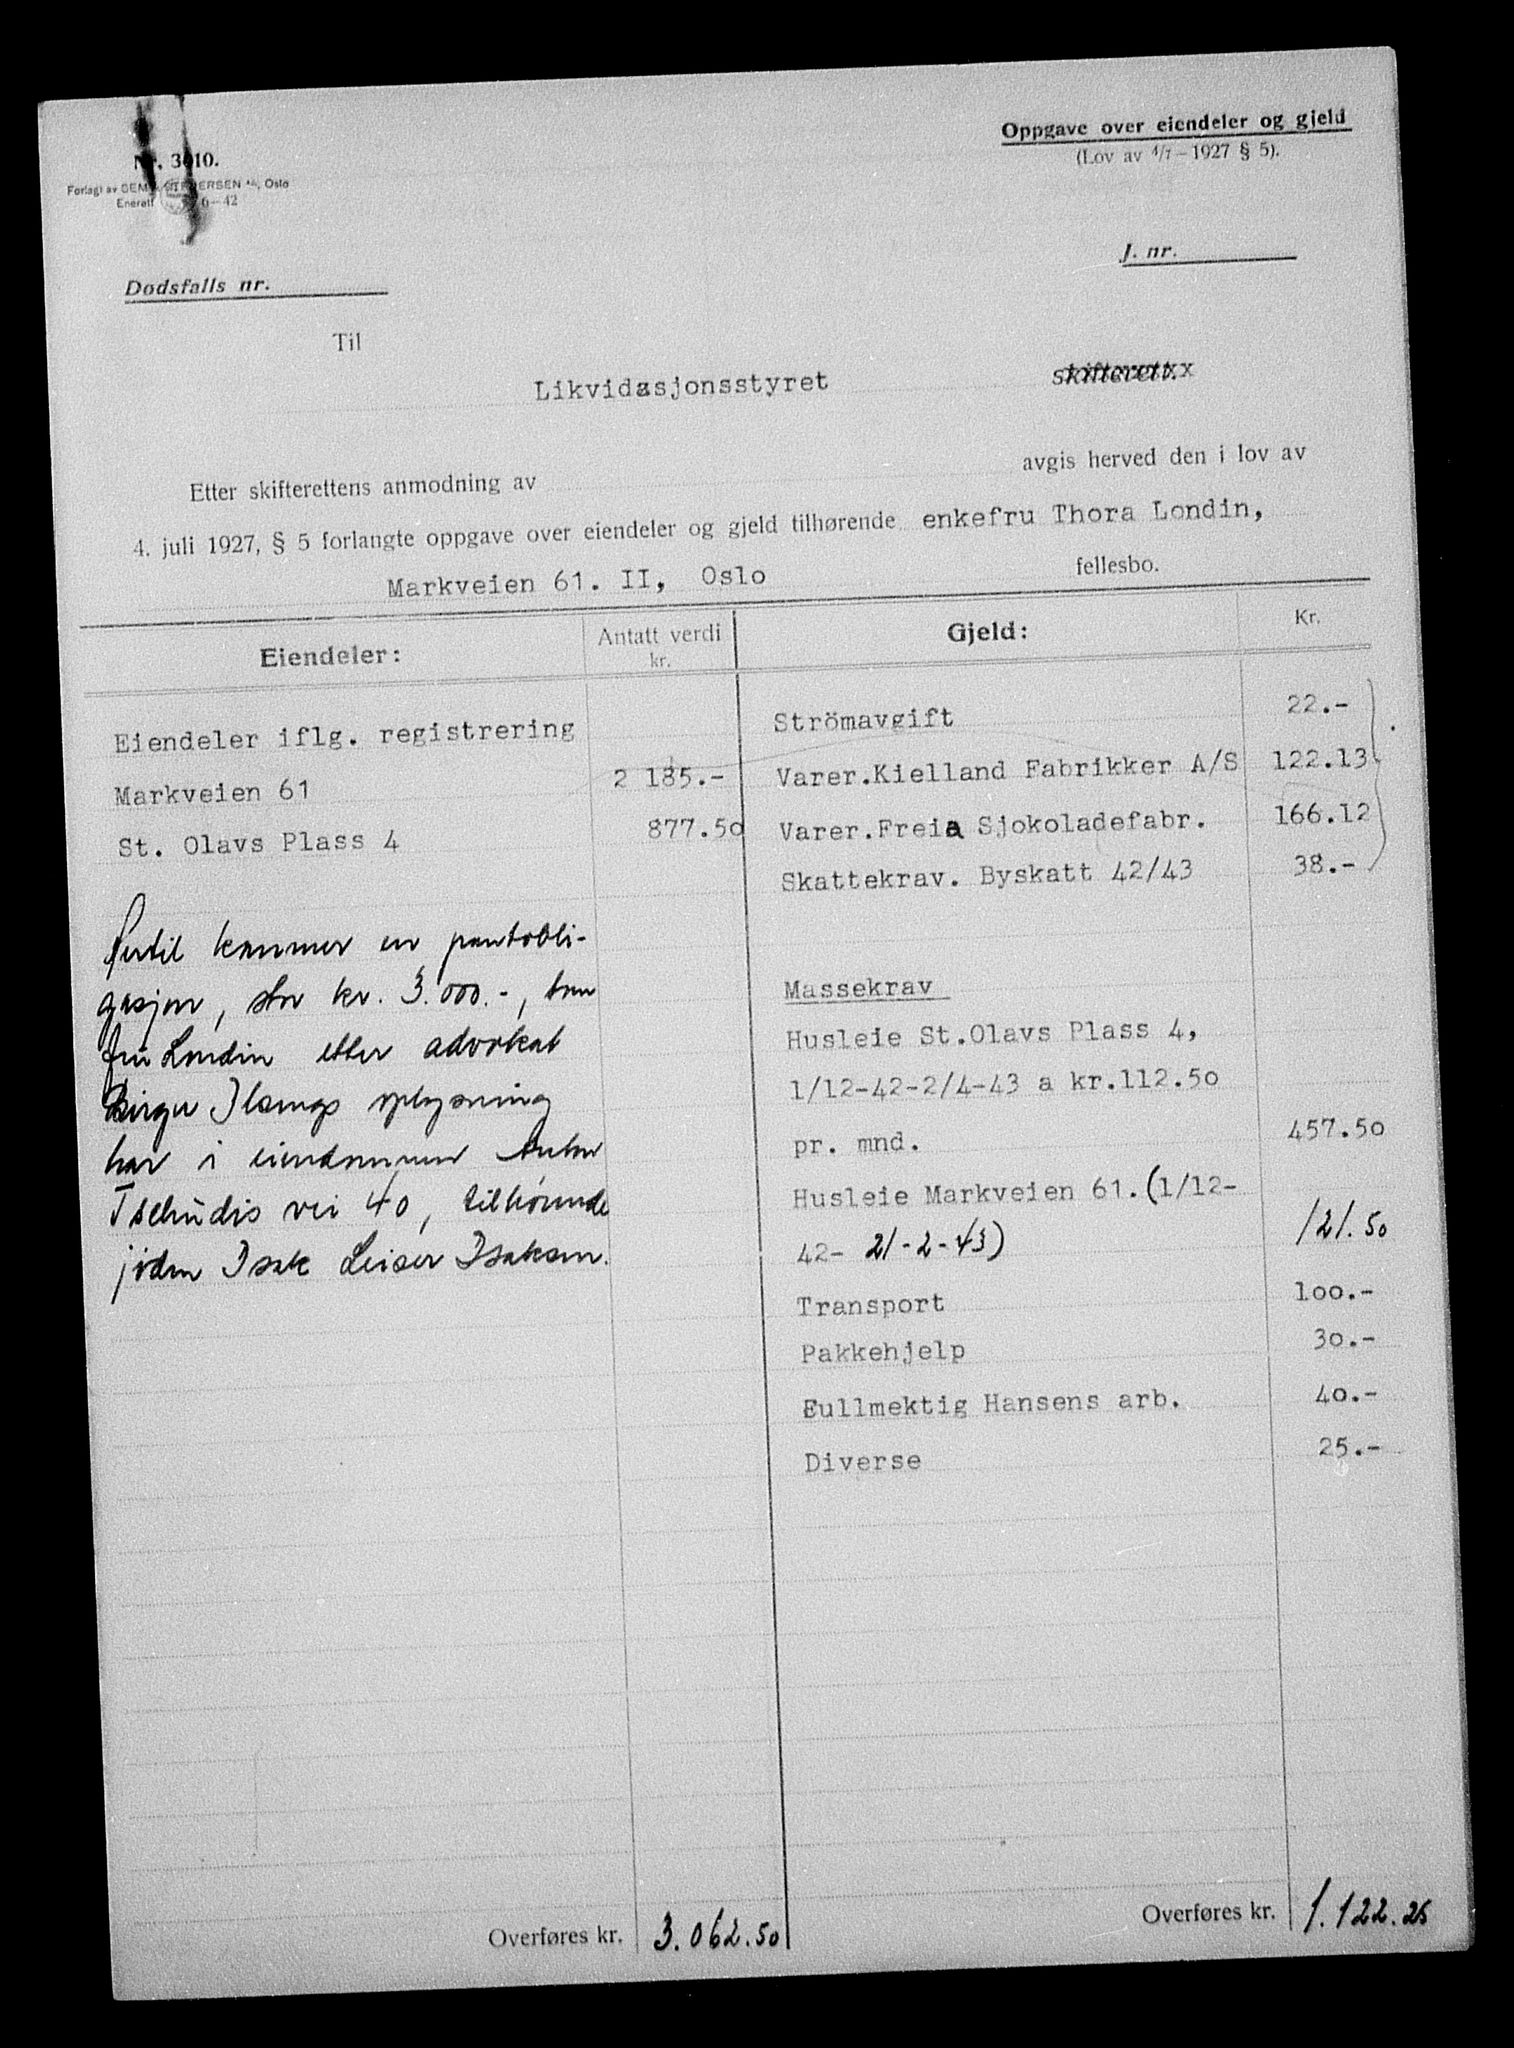 Oppgave over eiendeler og gjeld
(Lov av 4/7 – 1927 § 5).
Nr. 3010.
Forlagt av SEM & STENERSEN A/S, Oslo
Enerett 6–42
J. nr.
Dødsfalls nr.
Til
Likvidasjonsstyret skifterett.
Etter skifterettens anmodning av avgis herved den i lov av
4. juli 1927, § 5 forlangte oppgave over eiendeler og gjeld tilhørende enkefru Thora Londin,
Markveien 61. II, Oslo fellesbo.
Eiendeler: Antatt verdi kr.
Eiendeler iflg. registrering
Markveien 61 2 185.-
St. Olavs Plass 4 877.50
Hertil kommer en pantobli-
gasjon, stor kr. 3.000.-, som
fru Londin etter advokat
Birger Ilsengs oplysning
har i eiendommen Anton
Tschudis vei 40, tilhørende
jøden Isak Leiser Isaksen.
Overføres kr. 3.062.50
Gjeld: Kr.
Strömavgift 22.-
Varer.Kielland Fabrikker A/S 122.13
Varer.Freia Sjokoladefabr. 166.12
Skattekrav. Byskatt 42/43 38.-
Massekrav
Husleie St.Olavs Plass 4,
1/12-42-2/4-43 a kr.112.50
pr. mnd. 457.50
Husleie Markveien 61.(1/12-
42- 21-2-43) 121.50
Transport 100.-
Pakkehjelp 30.-
Fullmektig Hansens arb. 40.-
Diverse 25.-
Overføres kr. 1.122.25